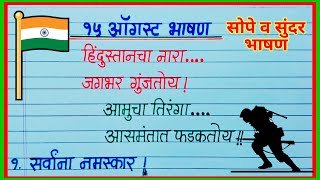 १५ ऑगस्ट भाषण
सोपे व सुंदर
भाषण
हिंदुस्तानचा नारा....
जगभर गुंजतोय!
आमुचा तिरंगा....
आसमंतात फडकतोय!!
१. सर्वांना नमस्कार!